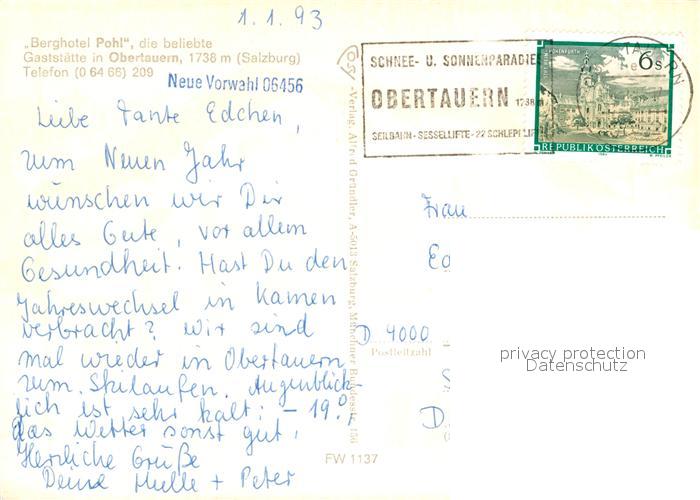 1.1.93
„Berghotel Pohl", die beliebte
Gaststätte in Obertauern, 1738 m (Salzburg)
Telefon (0 64 66) 209
Neue Vorwahl 06456
Liebe Tante Edchen,
zum Neuen Jahr
wünschen wir Dir
alles Gute, vor allem
Gesundheit. Hast Du den
Jahreswechsel in Kamen
verbracht? Wir sind
mal wieder in Obertauern
zum Skilaufen. Augenblick-
lich ist sehr kalt: -19°,
das Wetter sonst gut.
Herzliche Grüße
Deine Mulle + Peter
-Verlag, Alfred Gründler, A-5013 Salzburg, Münchner Bundesstr. 156
SCHNEE- U. SONNENPARADIE
OBERTAUERN 1738 m
SEILBAHN-SESSELLIFTE-22 SCHLEPPLIF
6s
REPUBLIK ÖSTERREICH
Frau
Ed
D 4000
Postleitzahl
S
D
privacy protection
Datenschutz
FW 1137